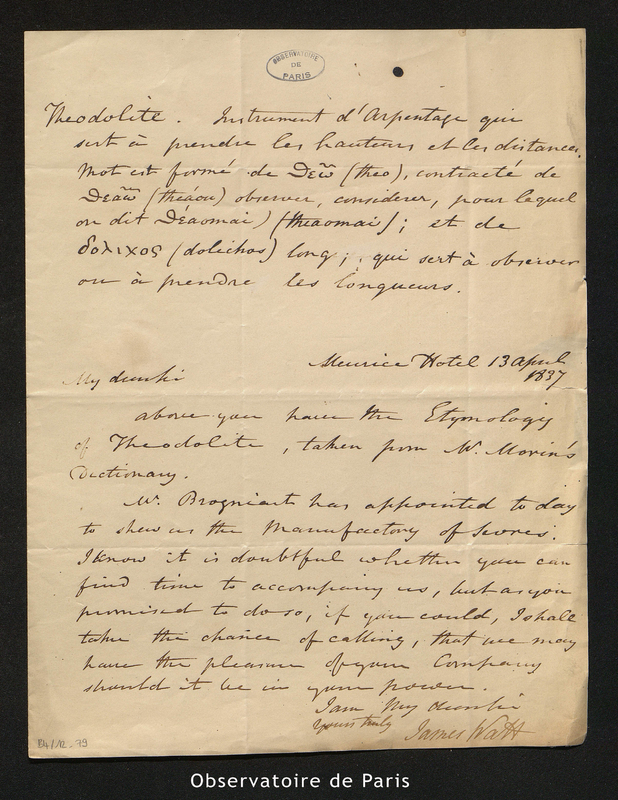 OBSERVATOIRE
DE
PARIS
Theodolite. Instrument d'Arpentage qui
sert à prendre les hauteurs et les distances.
Mot est formé de (theo), contracté de
(theáou) observer, considerer, pour lequel
on dit (theaomai); et de
δολιχος (dolichos) long; qui sert à observer
ou à prendre les longueurs.
Meurice Hotel 13 April
1837
My dear Sir
above you have the Etymology
of Theodolite, taken from Mr. Morin's
Dictionary.
Mr. Brogniart has appointed to day
to shew us the Manufactory of Sevres.
I know it is doubtful whether you can
find time to accompany us, but as you
promised to do so, if you could, I shall
take the chance of calling, that we may
have the pleasure of your Company
should it be in your power.
I am My dear Sir
yours truly James Watt
Observatoire de Paris